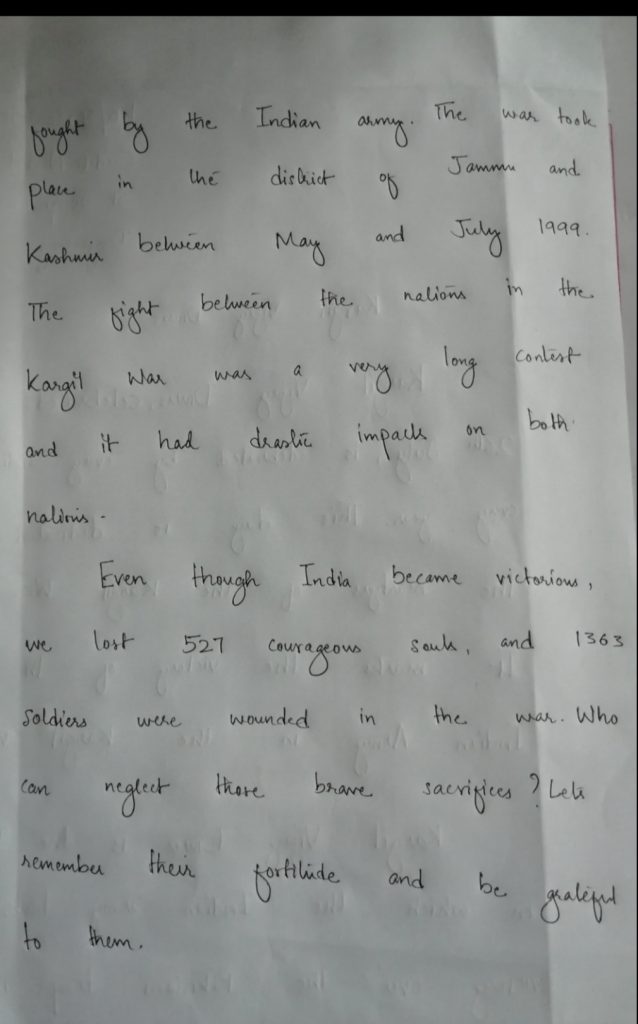 fought by the Indian army. The war took
place in the district of Jammu and
Kashmir between May and July 1999.
The fight between the nations in the
Kargil War was a very long contest
and it had drastic impacts on both
nations.
Even though India became victorious,
we lost 527 courageous souls, and 1363
soldiers were wounded in the war. Who
can neglect those brave sacrifices? Lets
remember their fortitude and be grateful
to them.